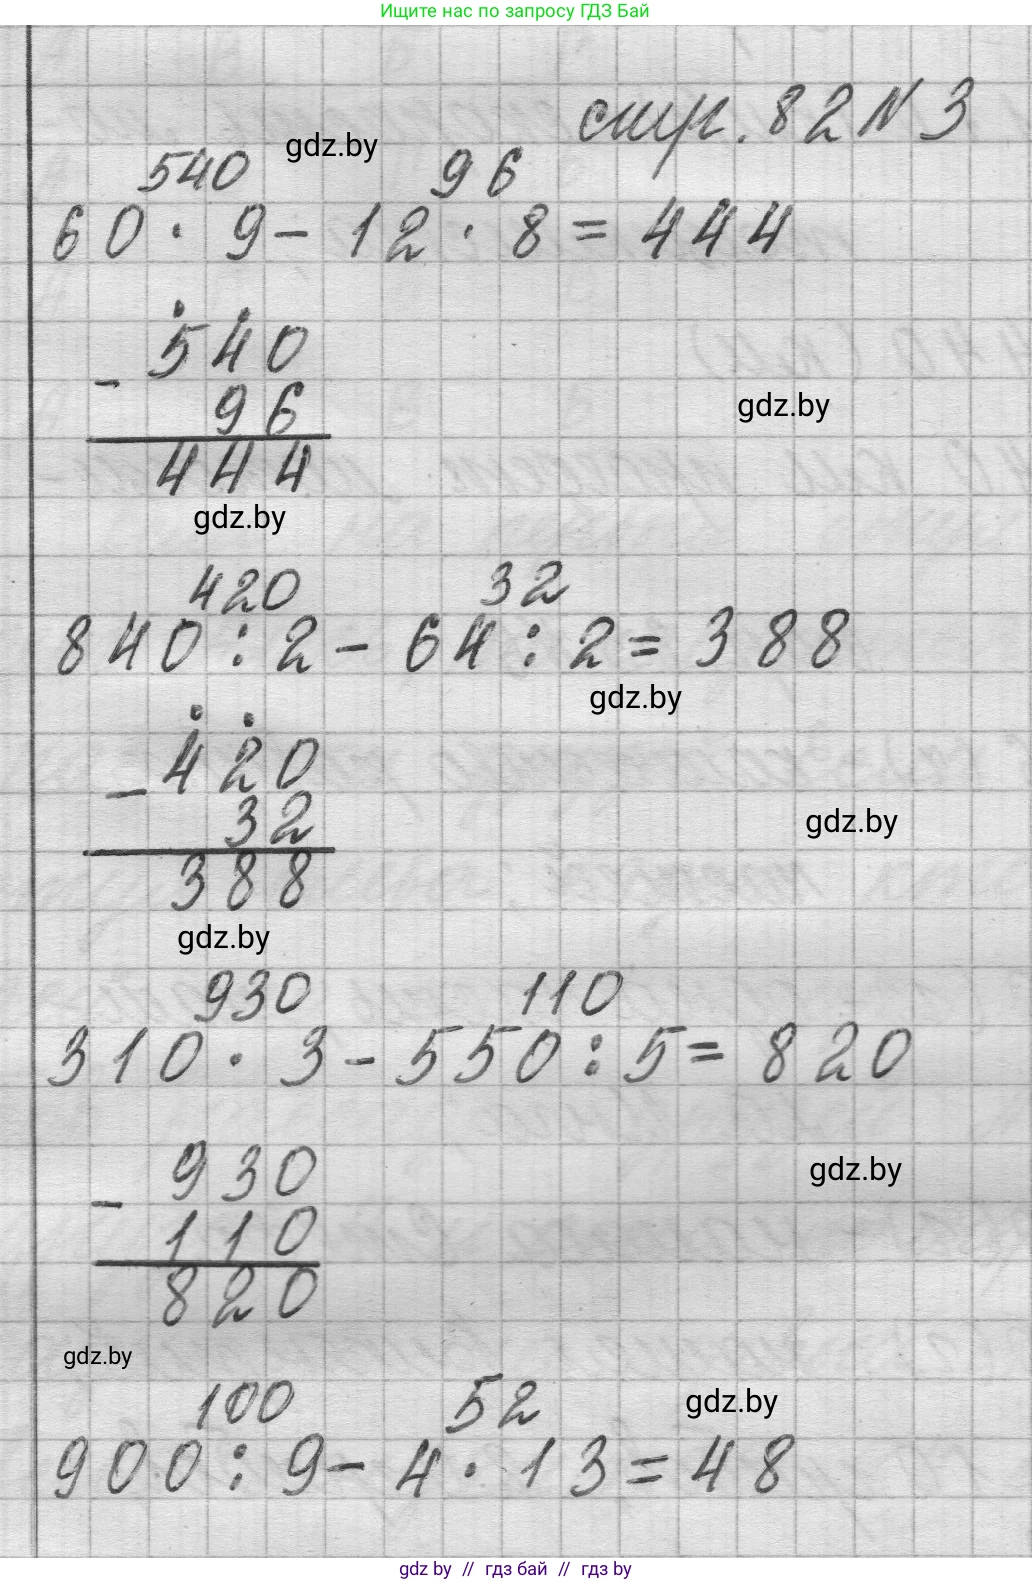 Ищите нас по запросу ГДЗ Бай
стр. 82 N 3
gdz.by
540 96
60 · 9 - 12 · 8 = 444
- 540
96
gdz.by
444
gdz.by
420 32
840 : 2 - 64 : 2 = 388
gdz.by
- 420
32
gdz.by
388
gdz.by
930 110
310 · 3 - 550 : 5 = 820
- 930
gdz.by
110
820
gdz.by
100 52
gdz.by
900 : 9 - 4 · 13 = 48
gdz by // гдз бай // гдз by